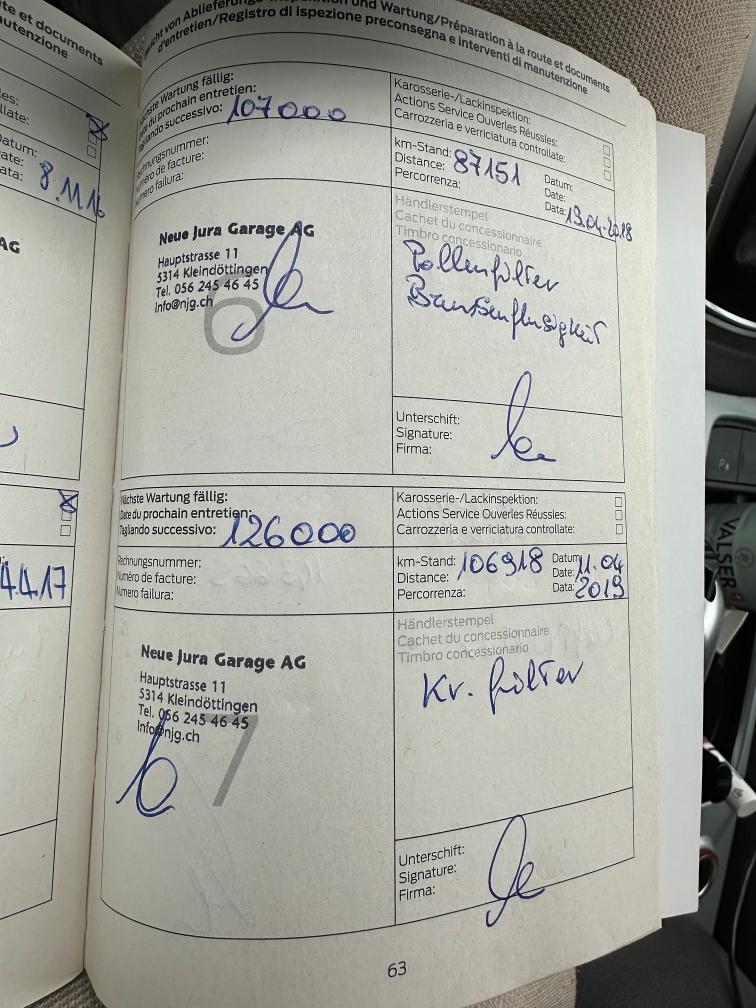 te et documents
nutenzione
es:
llate:
Datum:
ate:
ata:
8.11.16
AG
4.4.17
richt von Ablieferungs-Inspektion und Wartung/Préparation à la route et documents
d'entretien/Registro di ispezione preconsegna e interventi di manutenzione
Nächste Wartung fällig:
Date du prochain entretien:
Tagliando successivo: 107000
Karosserie-/Lackinspektion:
Actions Service Ouverles Réussles:
Carrozzeria e verriciatura controllate:
Rechnungsnummer:
Numéro de facture:
Numero failura:
km-Stand: 87151
Distance:
Percorrenza:
Datum:
Date:
Data: 13.04.2018
Neue Jura Garage AG
Hauptstrasse 11
5314 Kleindöttingen
Tel. 056 245 46 45
Info@njg.ch
6
Händlerstempel
Cachet du concessionnaire
Timbro concessionario
Pollenfilter
Bremsenflusigkeit
Unterschift:
Signature:
Firma:
Nächste Wartung fällig:
Date du prochain entretien:
Tagliando successivo: 126000
Karosserie-/Lackinspektion:
Actions Service Ouverles Réussles:
Carrozzeria e verriciatura controllate:
Rechnungsnummer:
Numéro de facture:
Numero failura:
km-Stand: 106918
Distance:
Percorrenza:
Datum: 11.04
Date: 2019
Data:
Neue Jura Garage AG
Hauptstrasse 11
5314 Kleindöttingen
Tel. 056 245 46 45
Info@njg.ch
7
Händlerstempel
Cachet du concessionnaire
Timbro concessionario
Kr. filter
Unterschift:
Signature:
Firma:
63
VALSER
P